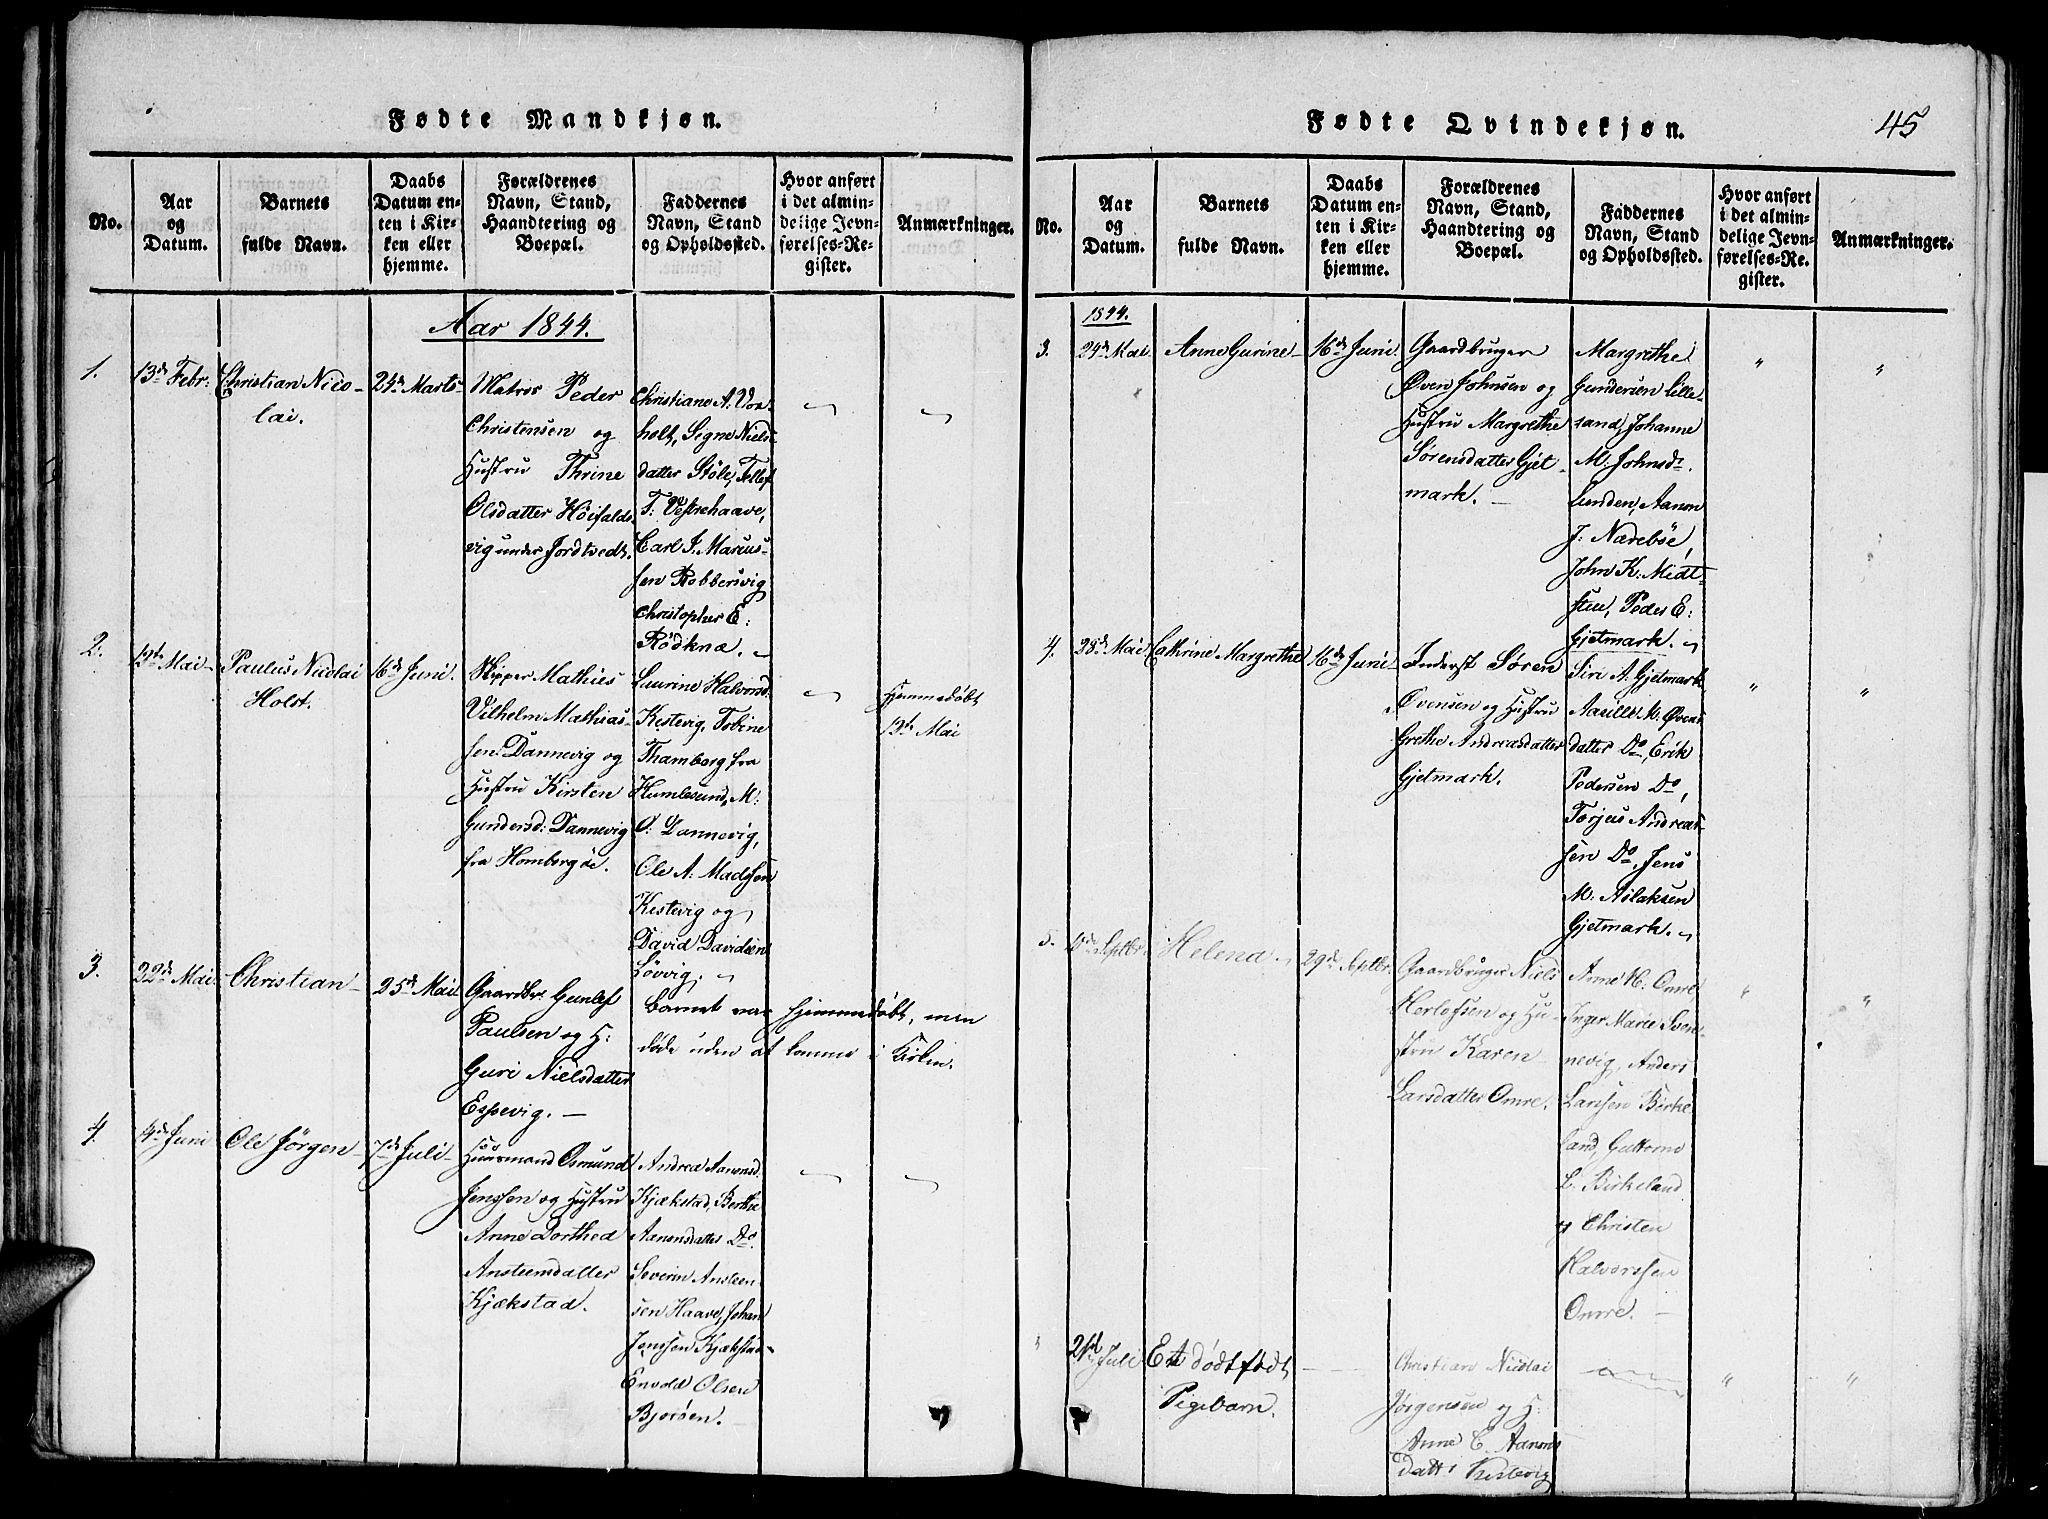 Fødte Mandkjøn.
No.
Aar
og
Datum.
Barnets
fulde Navn.
Daabs
Datum en-
ten i Kir-
ken eller
hjemme.
Forældrenes
Navn, Stand,
Haandtering og
Boepæl.
Faddernes
Navn, Stand
og Opholdssted.
Hvor anført
i det almin-
delige Jevn-
førelses-Re-
gister.
Anmærkninger.
Aar 1844.
1.
13de Febr.
Christian Nico-
lai.
24de Marts
Matros Peder
Christensen og
Hustru Thrine
Olsdatter Höifalds-
vig under Jordtvedt.
Christiane A. Vor-
holt, Segne Niels
datter Stöle, Tellef
T: Vestrehaave,
Carl J. Marcus-
sen Robbersvig
Christopher E:
Rödknæ.
2.
13de Mai
Paulus Nicolai
Holst.
16de Juni.
Skipper Mathies
Vilhelm Mathias-
sen Dannevig og
Hustru Kirsten
Gundersd: Dannevig
fra Homborgöe.
Laurine Halvorsd.
Kestevig, Tobine
Thamborg fra
Humlesund, M:
O: Dannevig,
Ole A: Madssen
Kestevig og
David Davidsen
Lövvig.
Hjemmedöbt
13de Mai
3.
22de Mai
Christian
25de Mai
Gaardbr. Gunlef
Paulsen og H:
Guri Nielsdatter
Espevig.
Barnet var hjemmedöbt, men
døde uden at komme i Kirken.
4.
4de Juni
Ole Jörgen
7de Juli
Huusmand Osmund
Jenssen og Hustru
Anne Dorthea
Ansteensdatter
Kjækstad.
Andrea Aanonsd.
Kjækstad, Berthe
Aanonsdatter Do.
Severin Ansteen
sen Haave, Johan
Jenssen Kjækstad
Envold Olsen
Bjoröen.
Fødte Qvindekjøn.
45
No.
Aar
og
Datum.
Barnets
fulde Navn.
Daabs
Datum en-
ten i Kir-
ken eller
hjemme.
Forældrenes
Navn, Stand,
Haandtering og
Boepæl.
Faddernes
Navn, Stand
og Opholdssted.
Hvor anført
i det almin-
delige Jevn-
førelses-Re-
gister.
Anmærkninger.
1844.
3.
24de Mai
Anne Gurine
16de Juni
Gaardbruger
Øven Johnsen og
Hustru Margrethe
Sørensdatter Gjet
mark.
Margrethe
Gundersen Lille
sand, Johanne
M. Johnsdr.
Lunden, Aanon
J: Nædeböe
John K: Midt-
steu, Peder E:
Gjetmark.
4.
28de Mai
Cathrine Margrethe
16de Juni
Inderst Søren
Øvensen og Hustru
Grethe Andreasdatter
Gjetmark.
Siri A. Gjetmark
Aasille M. Øvens
datter Do, Erik
Pedersen Do,
Torjus Andreas-
sen Do, Jens
M. Aslaksen
Gjetmark.
5.
Septbr.
Helena
29de Septbr.
Gaardbruger Niels
Herlofsen og Hu-
stru Karen
Larsdatter Omre.
Anne H: Omre
Inger Marie Sven-
nevig, Anders
Larssen Birke
land, Guttorm
L. Birkeland
og Christen
Halvorssen
Omre.
21de Juli
Et dødtfødt
Pigebarn.
Christian Nicolai
Jörgensen og H:
Anne C. Aanons
datt: Kestevig